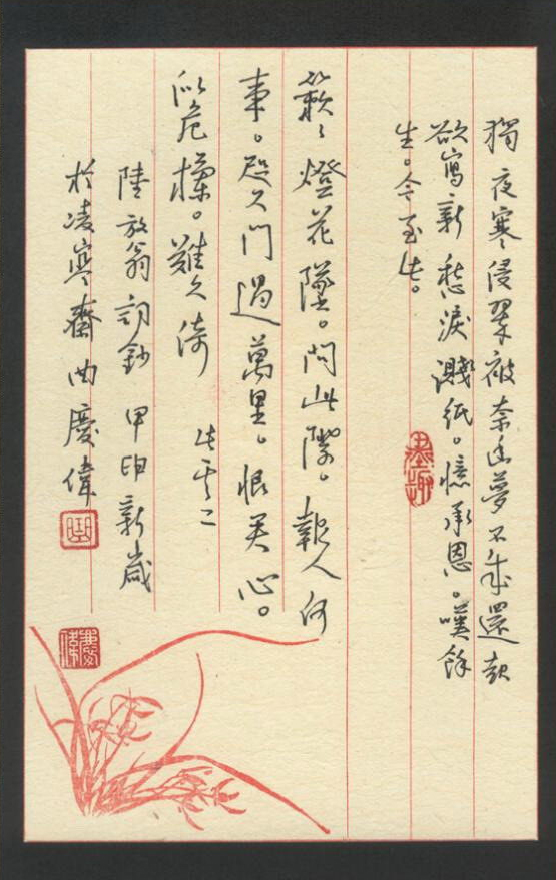 獨夜寒侵翠被奈幽夢不成還起
欲寫新愁淚濺紙。憶承恩。嘆餘
生。今至此。
簌〻燈花墜。問此際。報人何
事。咫尺門過萬里。恨君心。
似危欄。難久倚
陸放翁詞鈔 甲申新歲
於凌寒齋 曲慶偉
慶偉